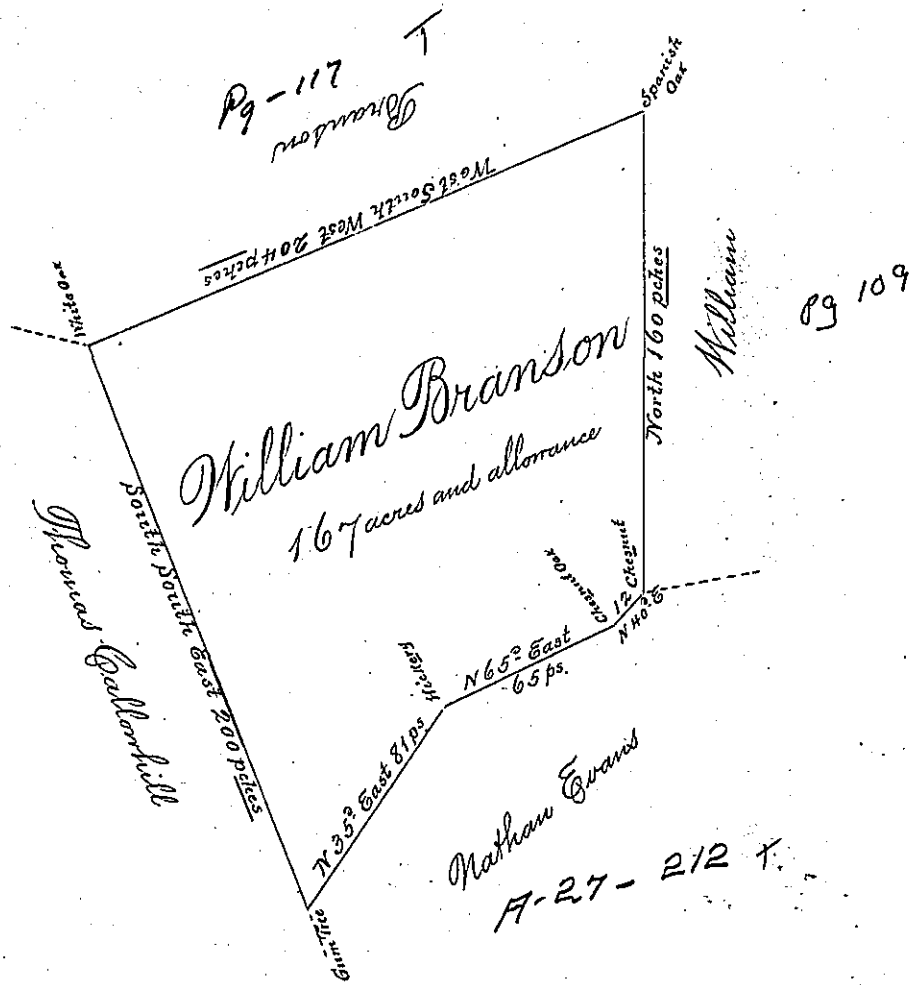 Pg-117 T
Branson
Spanish
Oak
West South West 204 pches
White Oak
North 160 pches
William
Pg 109
William Branson
167 acres and allowance
Thomas Callowhill
South South East 200 pches
Chesnut Oak
12 Chesnut
N 40° E
N 65° East
65 ps.
Hickery
N 35° East 81 ps.
Gum Tree
Nathan Evans
A-27-212 T.